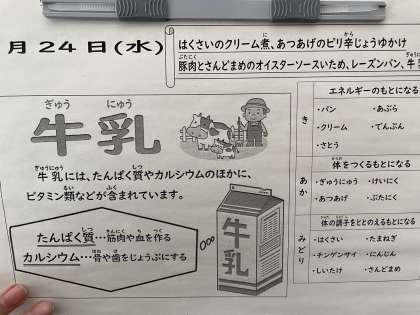 月24日(水)
はくさいのクリーム煮、あつあげのピリ辛じょうゆかけ
豚肉とさんどまめのオイスターソースいため、レーズンパン、牛
牛乳
牛乳には、たんぱく質やカルシウムのほかに、
ビタミン類などが含まれています。
たんぱく質…筋肉や血を作る
カルシウム…骨や歯をじょうぶにする
牛乳
き
エネルギーのもとになる
・パン ・あぶら
・クリーム ・でんぷん
・さとう
あか
体をつくるもとになる
・ぎゅうにゅう ・けいにく
・あつあげ ・ぶたにく
みどり
体の調子をととのえるもとになる
・はくさい ・たまねぎ
・チンゲンサイ ・にんじん
・しいたけ ・さんどまめ